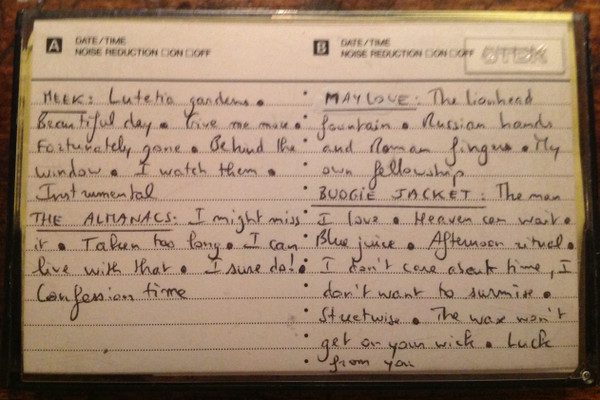 A DATE/TIME
NOISE REDUCTION □ON □OFF
MEEK: Lutetia gardens •
Beautiful day • Give me more •
Fortunately gone • Behind the
window • I watch them •
Instrumental
THE ALMANACS: I might miss
it • Taken too long • I can
live with that • I sure do! •
Confession time
B DATE/TIME
NOISE REDUCTION □ON □OFF
MAYLOVE: The lionhead
fountain • Russian hands
and Roman fingers • My
own fellowship
BUDGIE JACKET: The man
I love • Heaven can wait •
Blue juice • Afternoon ritual •
I don't care about time, I
don't want to surmise •
Streetwise • The wax won't
get on your wick • Luck
from you